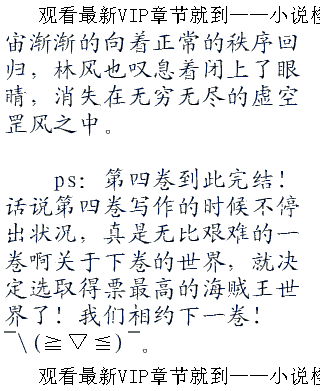 观看最新VIP章节就到——小说
宙渐渐的向着正常的秩序回
归，林风也叹息着闭上了眼
睛，消失在无穷无尽的虚空
罡风之中。
ps：第四卷到此完结！
话说第四卷写作的时候不停
出状况，真是无比艰难的一
卷啊关于下卷的世界，就决
定选取得票最高的海贼王世
界了！我们相约下一卷！
￣\(≧▽≦)￣。
观看最新VIP章节就到——小说